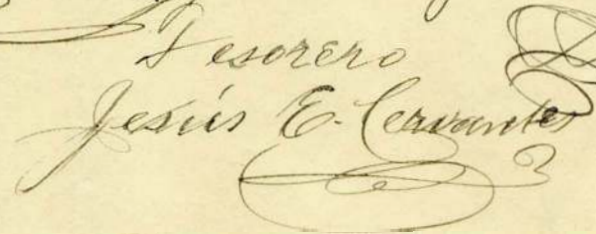 Tesorero
Jesús E. Cervantes